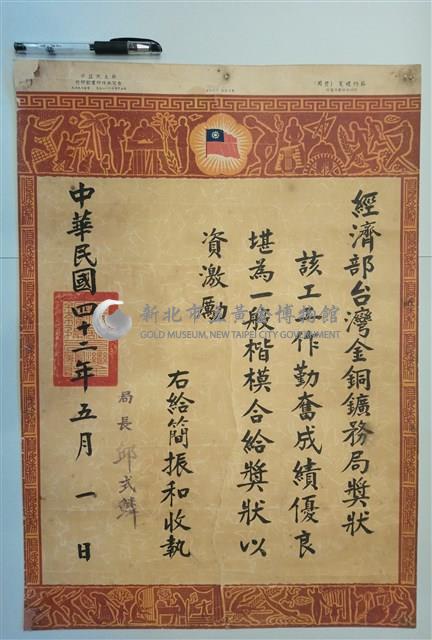 經濟部台灣金銅鑛務局獎狀
該工工作勤奮成績優良
堪為一般楷模合給獎狀以
資激勵
右給簡振和收執
局長
中華民國四十二年五月一日
新北市立黃金博物館
GOLD MUSEUM, NEW TAIPEI CITY GOVERNMENT